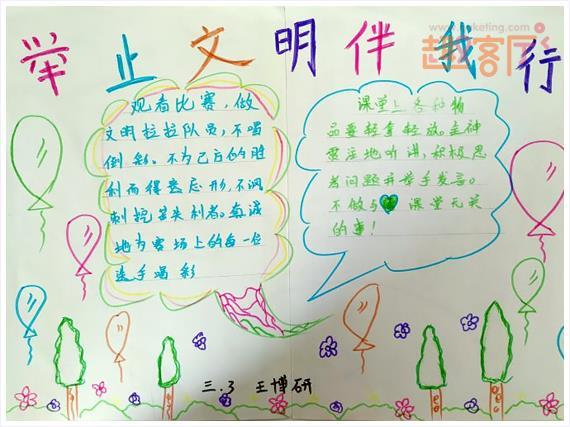 举止文明伴我行
www.quketing.com
趣客厅
观看比赛，做
文明拉拉队员，不喝
倒彩。不为己方的胜
利而得意忘形，不讽
刺挖苦失利者。真诚
地为赛场上的每一位
选手喝彩
课堂上各种物
品要轻拿轻放。全神
贯注地听讲，积极思
考问题并举手发言。
不做与 课堂无关
的事！
三.3 王博研